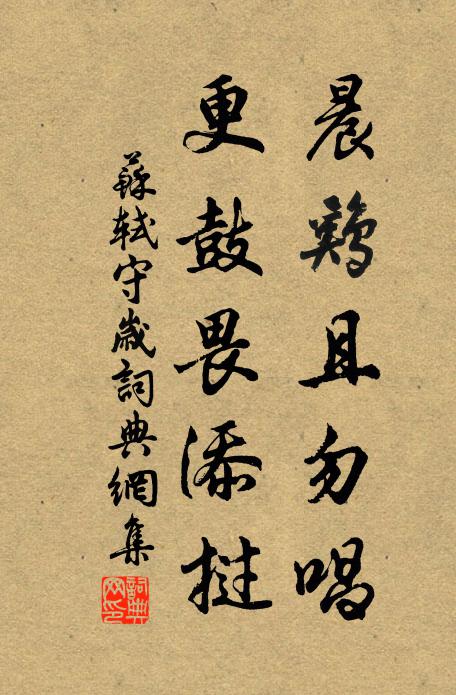 晨鷄且勿唱
更鼓畏添撾
蘇軾守歲詞典網集
詞典网印